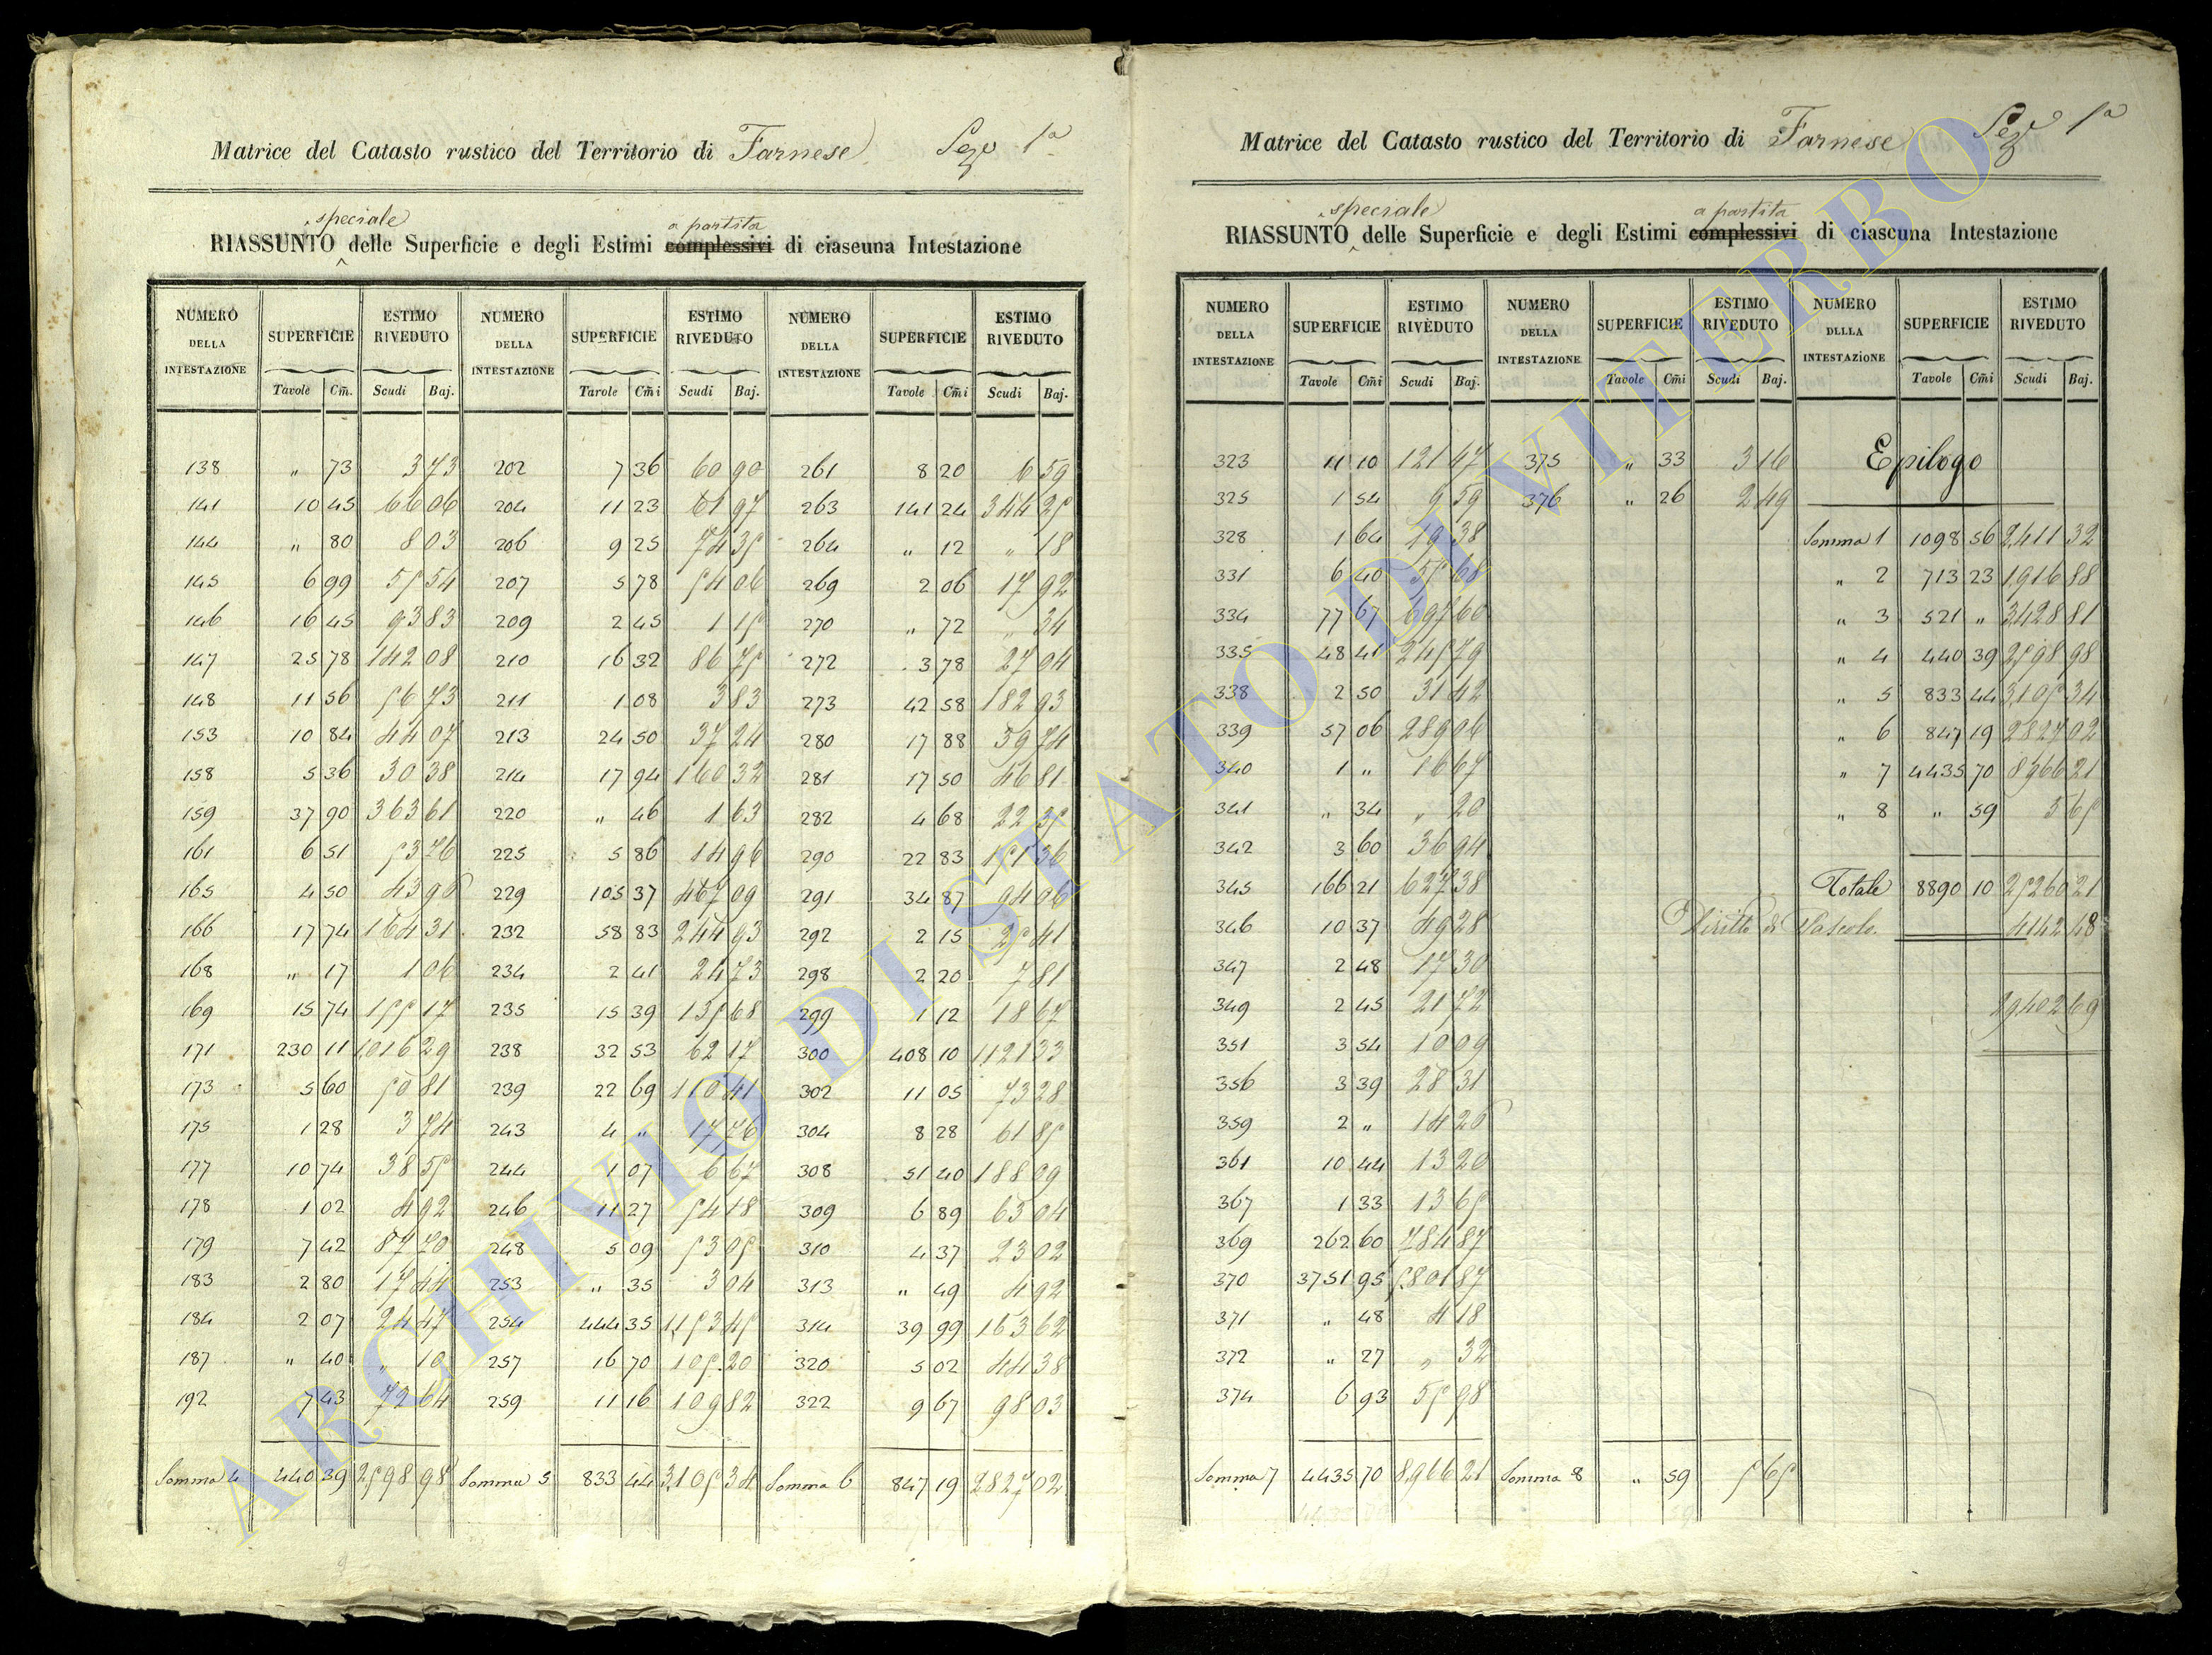 Matrice del Catasto rustico del Territorio di Farnese Sez.e 1a
speciale a partita
RIASSUNTO delle Superficie e degli Estimi complessivi di ciascuna Intestazione
NUMERO DELLA INTESTAZIONE SUPERFICIE ESTIMO RIVEDUTO NUMERO DELLA INTESTAZIONE SUPERFICIE ESTIMO RIVEDUTO NUMERO DELLA INTESTAZIONE SUPERFICIE ESTIMO RIVEDUTO
Tavole Cm̃. Scudi Baj. Tavole Cm̃i Scudi Baj. Tavole Cm̃i Scudi Baj.
138 " 73 3 73 202 7 36 60 90 261 8 20 6 59
141 10 45 66 06 204 11 23 61 97 263 141 24 344 25
144 " 80 8 03 206 9 25 74 35 264 " 12 " 18
145 6 99 55 54 207 5 78 54 06 269 2 06 17 92
146 16 45 93 83 209 2 45 1 15 270 " 72 " 34
147 25 78 142 08 210 16 32 86 75 272 3 78 27 04
148 11 56 56 73 211 1 08 3 83 273 42 58 182 93
153 10 84 44 07 213 24 50 37 24 280 17 88 39 74
158 5 36 30 38 214 17 94 160 32 281 17 50 46 81
159 37 90 363 61 220 " 46 1 63 282 4 68 22 35
161 6 51 53 76 225 5 86 14 96 290 22 83 151 36
165 4 50 43 90 229 105 37 467 09 291 34 87 94 06
166 17 74 164 31 232 58 83 244 93 292 2 15 25 41
168 " 17 1 06 234 2 41 24 73 298 2 20 7 81
169 15 74 155 17 235 15 39 135 68 299 1 12 18 67
171 230 11 1016 29 238 32 53 62 17 300 408 10 1121 33
173 5 60 50 81 239 22 69 110 41 302 11 05 73 28
175 1 28 3 74 243 4 " 17 76 304 8 28 61 85
177 10 74 38 55 244 1 07 6 67 308 51 40 188 09
178 1 02 4 92 246 11 27 54 18 309 6 89 63 04
179 7 42 87 70 248 5 09 53 05 310 4 37 23 02
183 2 80 17 44 253 " 35 3 04 313 " 49 4 92
184 2 07 24 47 254 444 35 1153 45 314 39 99 163 62
187 " 40 " 10 257 16 70 105 20 320 5 02 44 38
192 7 43 72 64 259 11 16 109 82 322 9 67 98 03
Somma 4 440 39 2598 98 Somma 5 833 44 3105 34 Somma 6 847 19 2827 02
Matrice del Catasto rustico del Territorio di Farnese Sez.e 1a
speciale a partita
RIASSUNTO delle Superficie e degli Estimi complessivi di ciascuna Intestazione
NUMERO DELLA INTESTAZIONE SUPERFICIE ESTIMO RIVEDUTO NUMERO DELLA INTESTAZIONE SUPERFICIE ESTIMO RIVEDUTO NUMERO DLLLA INTESTAZIONE SUPERFICIE ESTIMO RIVEDUTO
Tavole Cm̃i Scudi Baj. Tavole Cm̃i Scudi Baj. Tavole Cm̃i Scudi Baj.
323 11 10 121 47 375 " 33 3 16 Epilogo
325 1 54 9 59 376 " 26 2 49
328 1 64 19 38 Somma 1 1098 56 2411 32
331 6 40 55 68 " 2 713 23 1916 88
334 77 67 697 60 " 3 521 " 3428 81
335 48 41 245 79 " 4 440 39 2598 98
338 2 50 31 42 " 5 833 44 3105 34
339 57 06 289 06 " 6 847 19 2827 02
340 1 " 16 67 " 7 4435 70 8966 21
341 " 34 " 20 " 8 " 59 5 65
342 3 60 36 94
345 166 21 627 38 Totale 8890 10 25260 21
346 10 37 49 28 Diritto di Pascolo. 4142 48
347 2 48 17 30
349 2 45 21 72 29402 69
351 3 54 10 09
356 3 39 28 31
359 2 " 14 20
361 10 44 13 20
367 1 33 13 65
369 262 60 784 87
370 3751 95 5801 87
371 " 48 4 18
372 " 27 " 32
374 6 93 55 98
Somma 7 4435 70 8966 21 Somma 8 " 59 5 65
ARCHIVIO DI STATO DI VITERBO